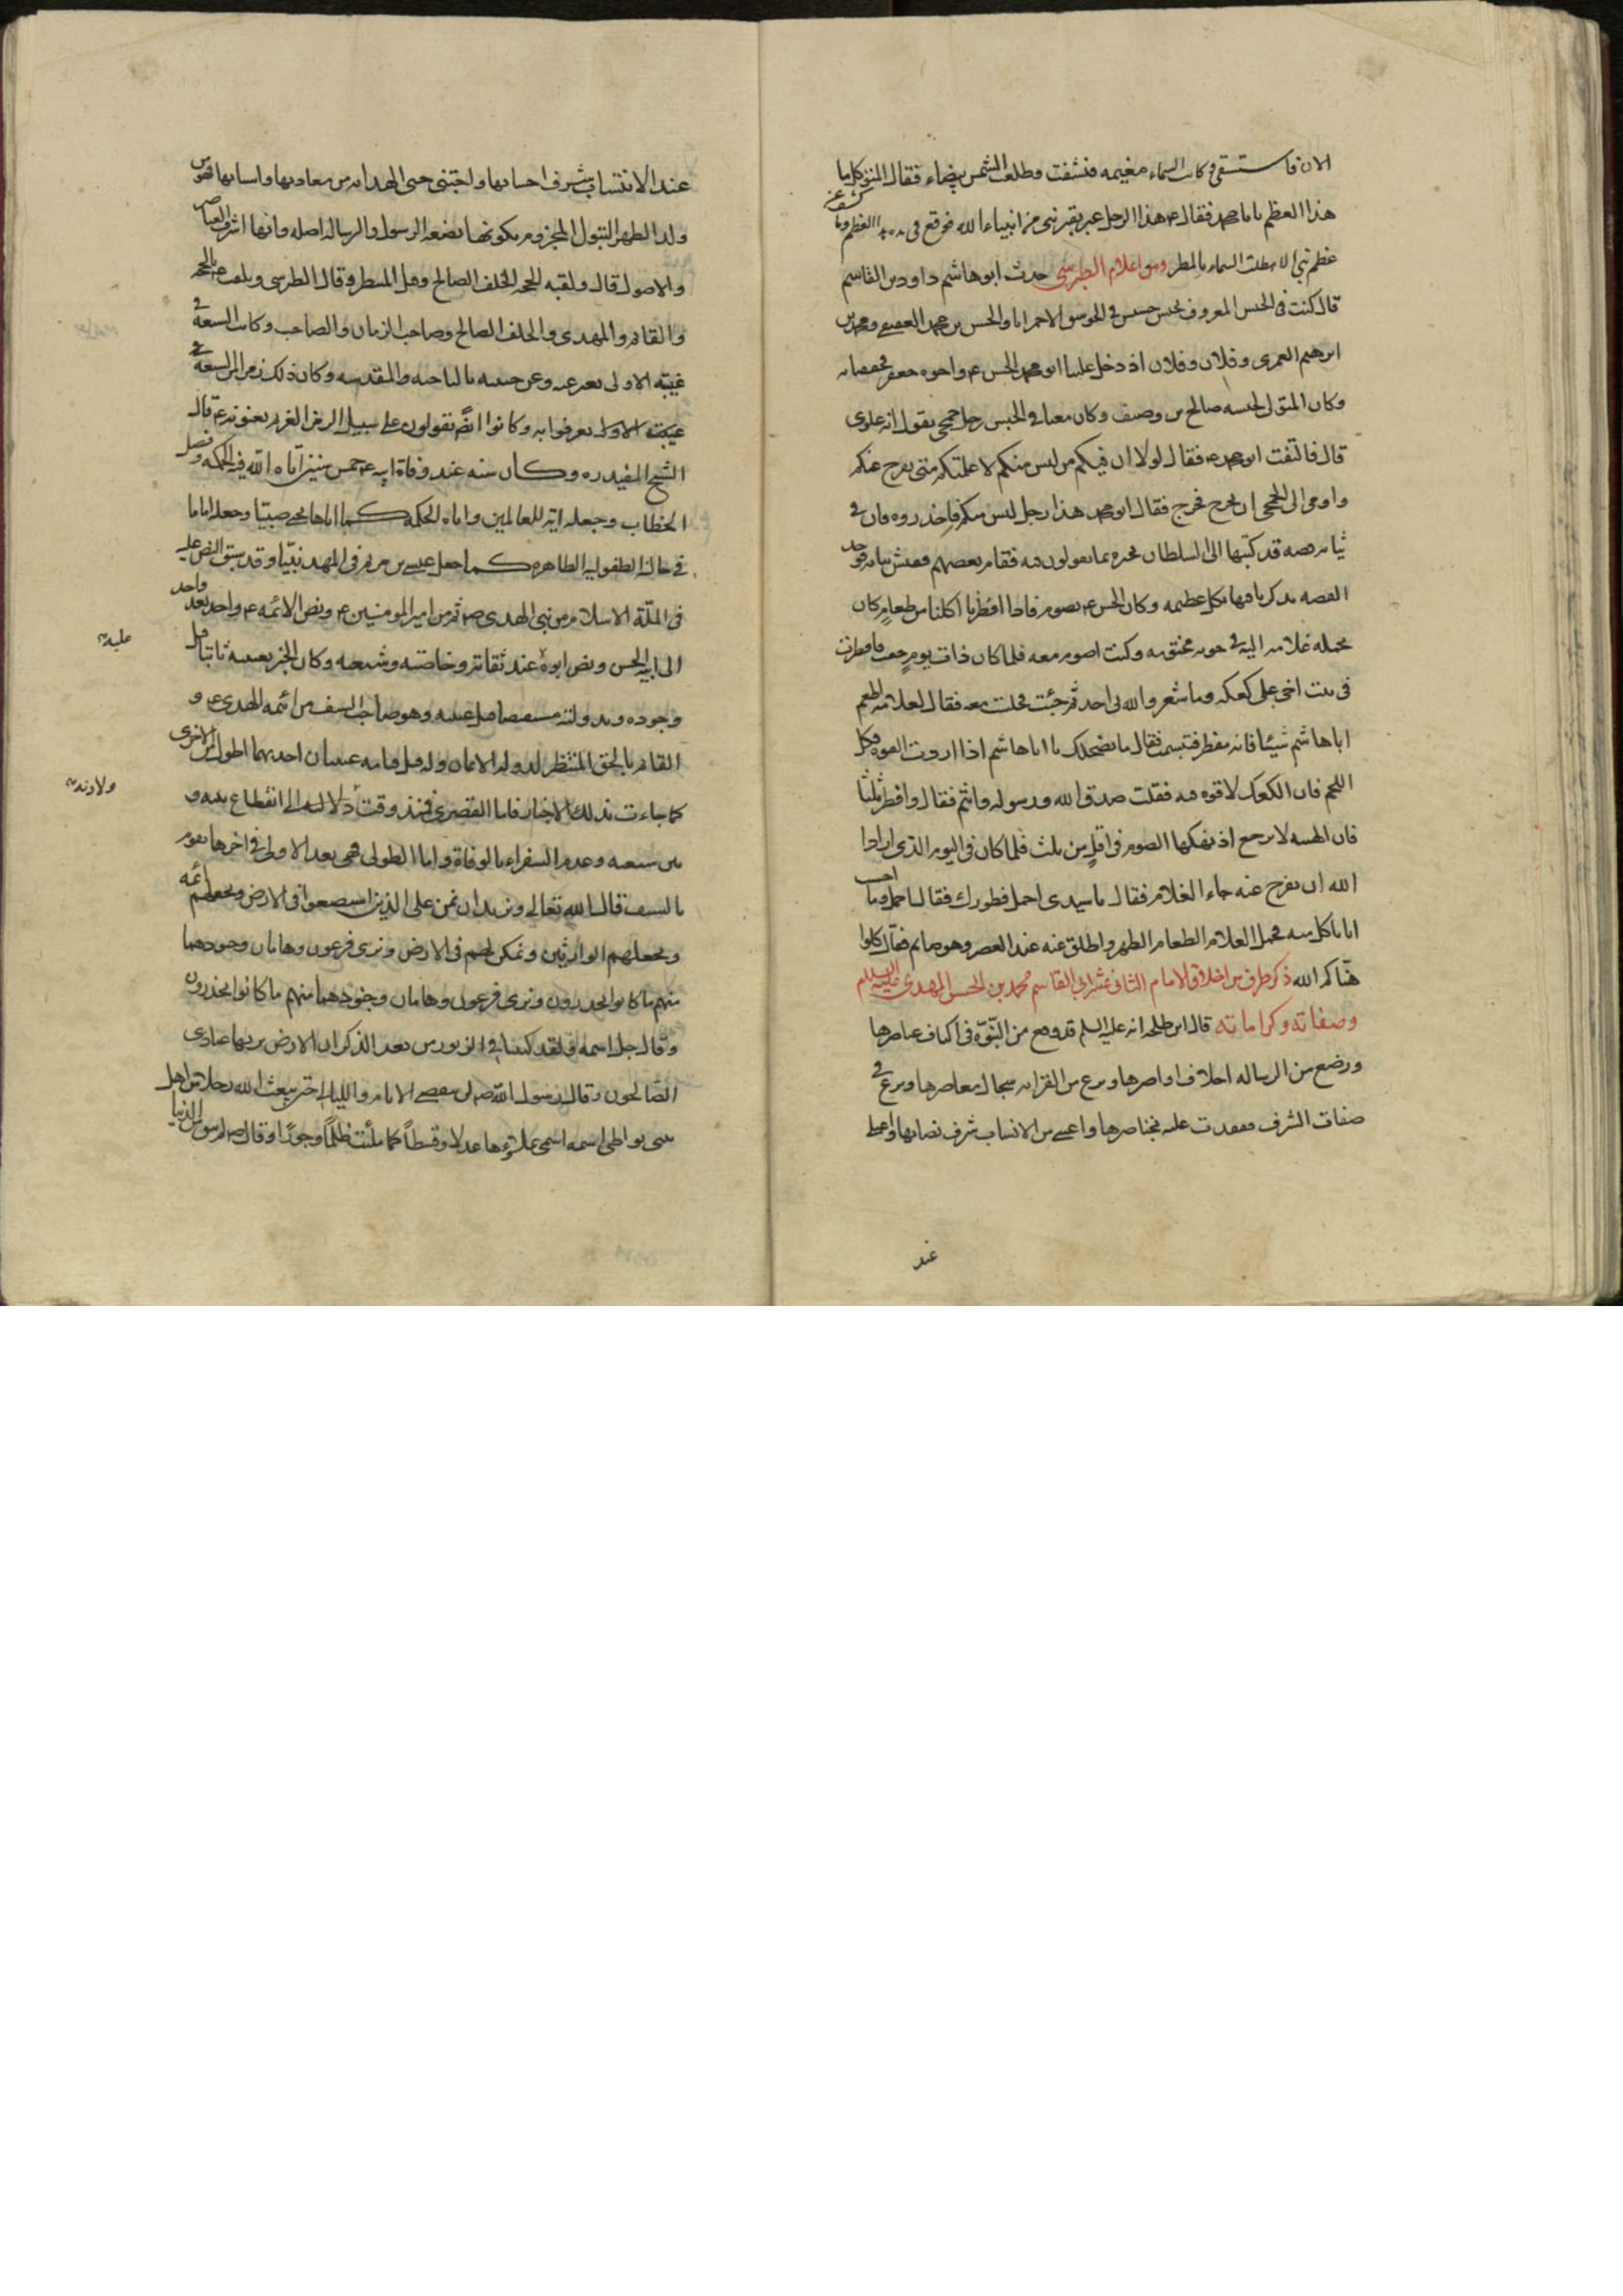 الان فاستسقى وكانت السماء مغيمه فتشفت وطلعت الشمس بيضاء فقال المتوكل ما
هذا العظم يابا محمد فقال ع هذا الرجل عبر بقبر نبى من انبياء الله فوقع فى يده هذا العظم وما كشف عن
عظم نبي الا هطلت السماء بالمطر ومن اعلام الطبرسي حدث ابو هاشم داود بن القاسم
قال كنت فى الحبس المعروف بحبس حسيس في الجوسق الاحمر انا والحسن بن محمد العقيقي ومحمد بن
ابرهيم العمرى وفلان وفلان اذ دخل علينا ابو محمد الحسن ع واخوه جعفر فحففنا به
وكان المتولى لحبسه صالح بن وصيف وكان معنا في الحبس رجل جمحي يقول انه علوى
قال فالتفت ابو محمد ع فقال لولا ان فيكم من ليس منكم لاعلمتكم متى يفرج عنكم
واومى الى الجمحي ان يخرج فخرج فقال ابو محمد هذا رجل ليس منكم فاحذروه فان في
ثيابه قصه قد كتبها الى السلطان يخبره بما تقولون فيه فقام بعضهم ففتش ثيابه فوجد
القصه يذكرنا فيها بكل عظيمه وكان الحسن ع يصوم فاذا افطر اكلنا من طعام كان
يحمله غلامه اليه في جونه مختومه وكنت اصوم معه فلما كان ذات يوم ضعفت فافطرت
فى بيت اخر على كعكه وما شعر والله بى احد ثم جئت فجلست معه فقال لغلامه اطعم
ابا هاشم شيئا فانه مفطر فتبسمت فقال ما يضحكك يا ابا هاشم اذا اردت القوه فكل
اللحم فان الكعك لا قوه فيه فقلت صدق الله ورسوله وانتم فقال وافطر ثلثا
فان المنه لا ترجع اذ نهكها الصوم فى اقل من ثلث فلما كان فى اليوم الذى اراد
الله ان يفرج عنه جاء الغلام فقال يا سيدى احمل فطورك فقال احمل وما احسب
انا ناكل منه فحمل الغلام الطعام الظهر واطلق عنه عند العصر وهو صايم فقال كلوا
هناكم الله ذكر طرف من اخلاق الامام الثانى عشر ابي القاسم محمد بن الحسن المهدي عليه السلام
وصفاته وكراماته قال ابن طلحه انه عليه السلم قد وقع من النبوّة فى اكناف عناصرها
ورضع من الرساله اخلاف اواصرها ونزع من القرابه سجال معاصرها وبرع في
صفات الشرف فعقدت عليه بخناصرها واقتنى من الانساب شرف نصابها واعتلى
عند
عند الانتساب بشرف احسابها واجتنى جنى الهدايه من معادنها واسبابها فهو من
ولد الطهر البتول المجزوم بكونها بضعة الرسول والرساله اصله وانها اشرف العناصر
والاصول قال ولقبه الحجه الخلف الصالح وقيل المنتظر وقال الطبرسى ويلقب ع بالحجه
والقائم والمهدى والخلف الصالح وصاحب الزمان والصاحب وكانت الشيعة في
غيبته الاولى تعبر عنه وعن غيبته بالناحيه المقدسه وكان ذلك رمزا بين الشيعة في
غيبته الاولى يعرفوا به وكانوا ايضً يقولون على سبيل الرمز الغريم يعنونه ع قال
الشيخ المفيد ره وكان سنه عند وفاة ابيه ع خمس سنين آتاه اللّه فيه الحكمه وفصل
الخطاب وجعله اية للعالمين واتاه الحكمة كما اتاها يحيى صبيّا وجعله اماما
في حالة الطفوليه الظاهره كما جعل عيسى بن مريم فى المهد نبيّا وقد سبق النص عليه
فى الملّة الاسلام من نبى الهدى ص ثم من امير المومنين ع ونص الائمه ع واحد بعد واحد
الى ابيه الحسن ونص ابوه عند ثقاته وخاصته وشيعته وكان الخبر بغيبته ثابتا قبل
عليه
وجوده وبدولته مستفيضا قبل غيبته وهو صاحب السيف من ائمه الهدى ع و
القائم بالحق المنتظر لدولة الايمان وله قبل قيامه غيبتان احديهما اطول من الاخرى
كما جاءت بذلك الاخبار فاما القصرى فمنذ وقت دلالته الى انقطاع بينه و
ولادته
بين شيعته وعدم السفراء بالوفاة واما الطولى فهى بعد الاولى فى اخرها يقوم
بالسيف قال الله تعالى ونريد ان نمن على الذين استضعفوا فى الارض ونجعلهم ائمه
ونجعلهم الوارثين ونمكن لهم فى الارض ونرى فرعون وهامان وجنودهما
منهم ما كانوا يحذرون ونرى فرعون وهامان وجنودهما منهم ما كانوا يحذرون
وقال جل اسمه ولقد كتبنا في الزبور من بعد الذكر ان الارض يرثها عبادى
الصّالحون وقال رسول اللّه ص لن ينقضى الايام والليالى حتى يبعث الله رجلا من اهل
بيتى يواطى اسمه اسمى يملؤها عدلا وقسطاً كما ملئت ظلماً وجورًا وقال ص لو لم يبق من الدنيا